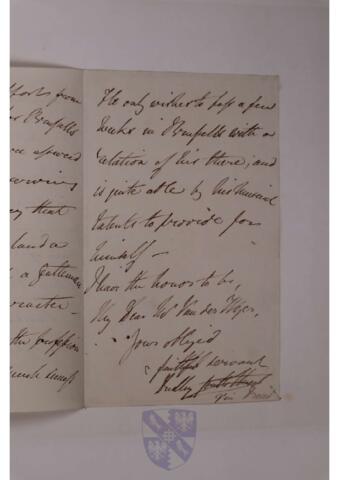 ports from
Brussells
owed
that
land a
a Gentleman
racter -
the profession
himself
He only wishes to pass a few
Weeks in Brussells with a
relation of his there, and
is quite able by his musical
talents to provide for
himself -
I have the honor to be,
My Dear Mr Van der Weyer,
Yours obliged
faithful servant
Dudley